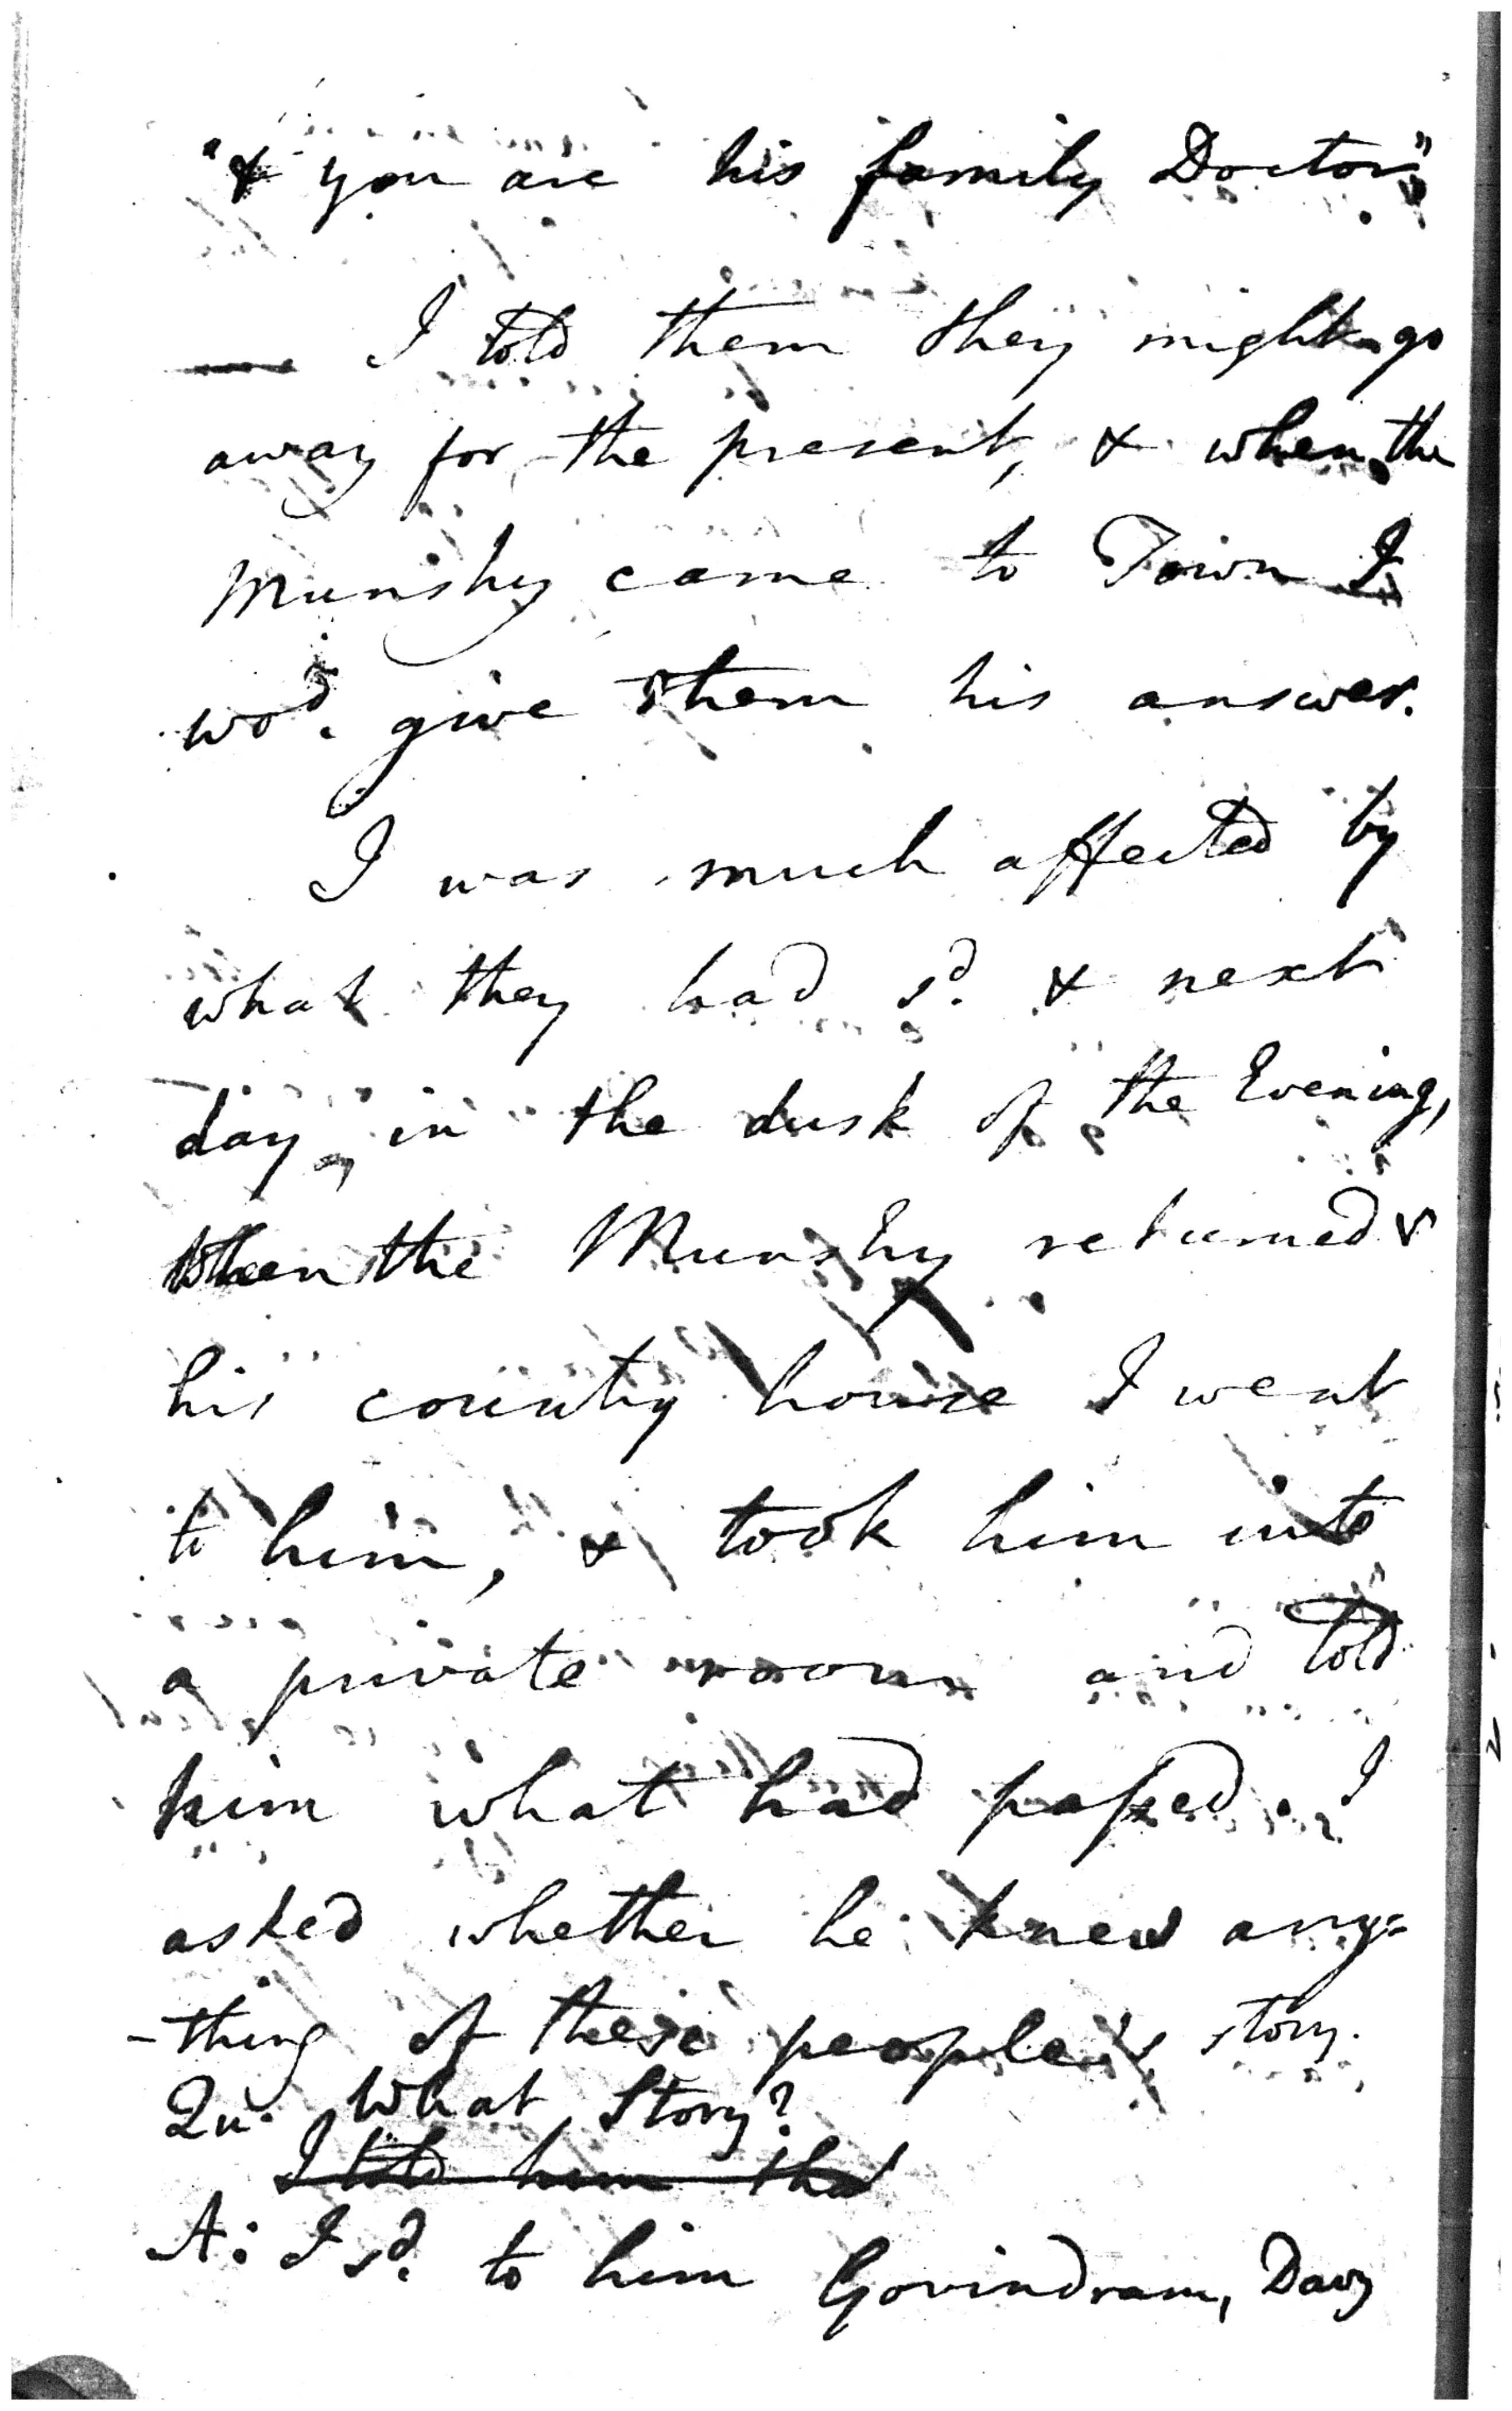 "& you are his family Doctor"
— I told them they might go
away for the present, & when the
Munshy came to Town I
wod. give them his answer.
I was much affected by
what they had sd. & next
day in the dusk of the Evening,
when the Munshy returned
his country house I went
to him, & took him into
a private room and told
him what had passed. I
asked whether he knew any=
-thing of these people's story.
Qu. What Story?
I told him that
A: I sd. to him Govindram, Davy